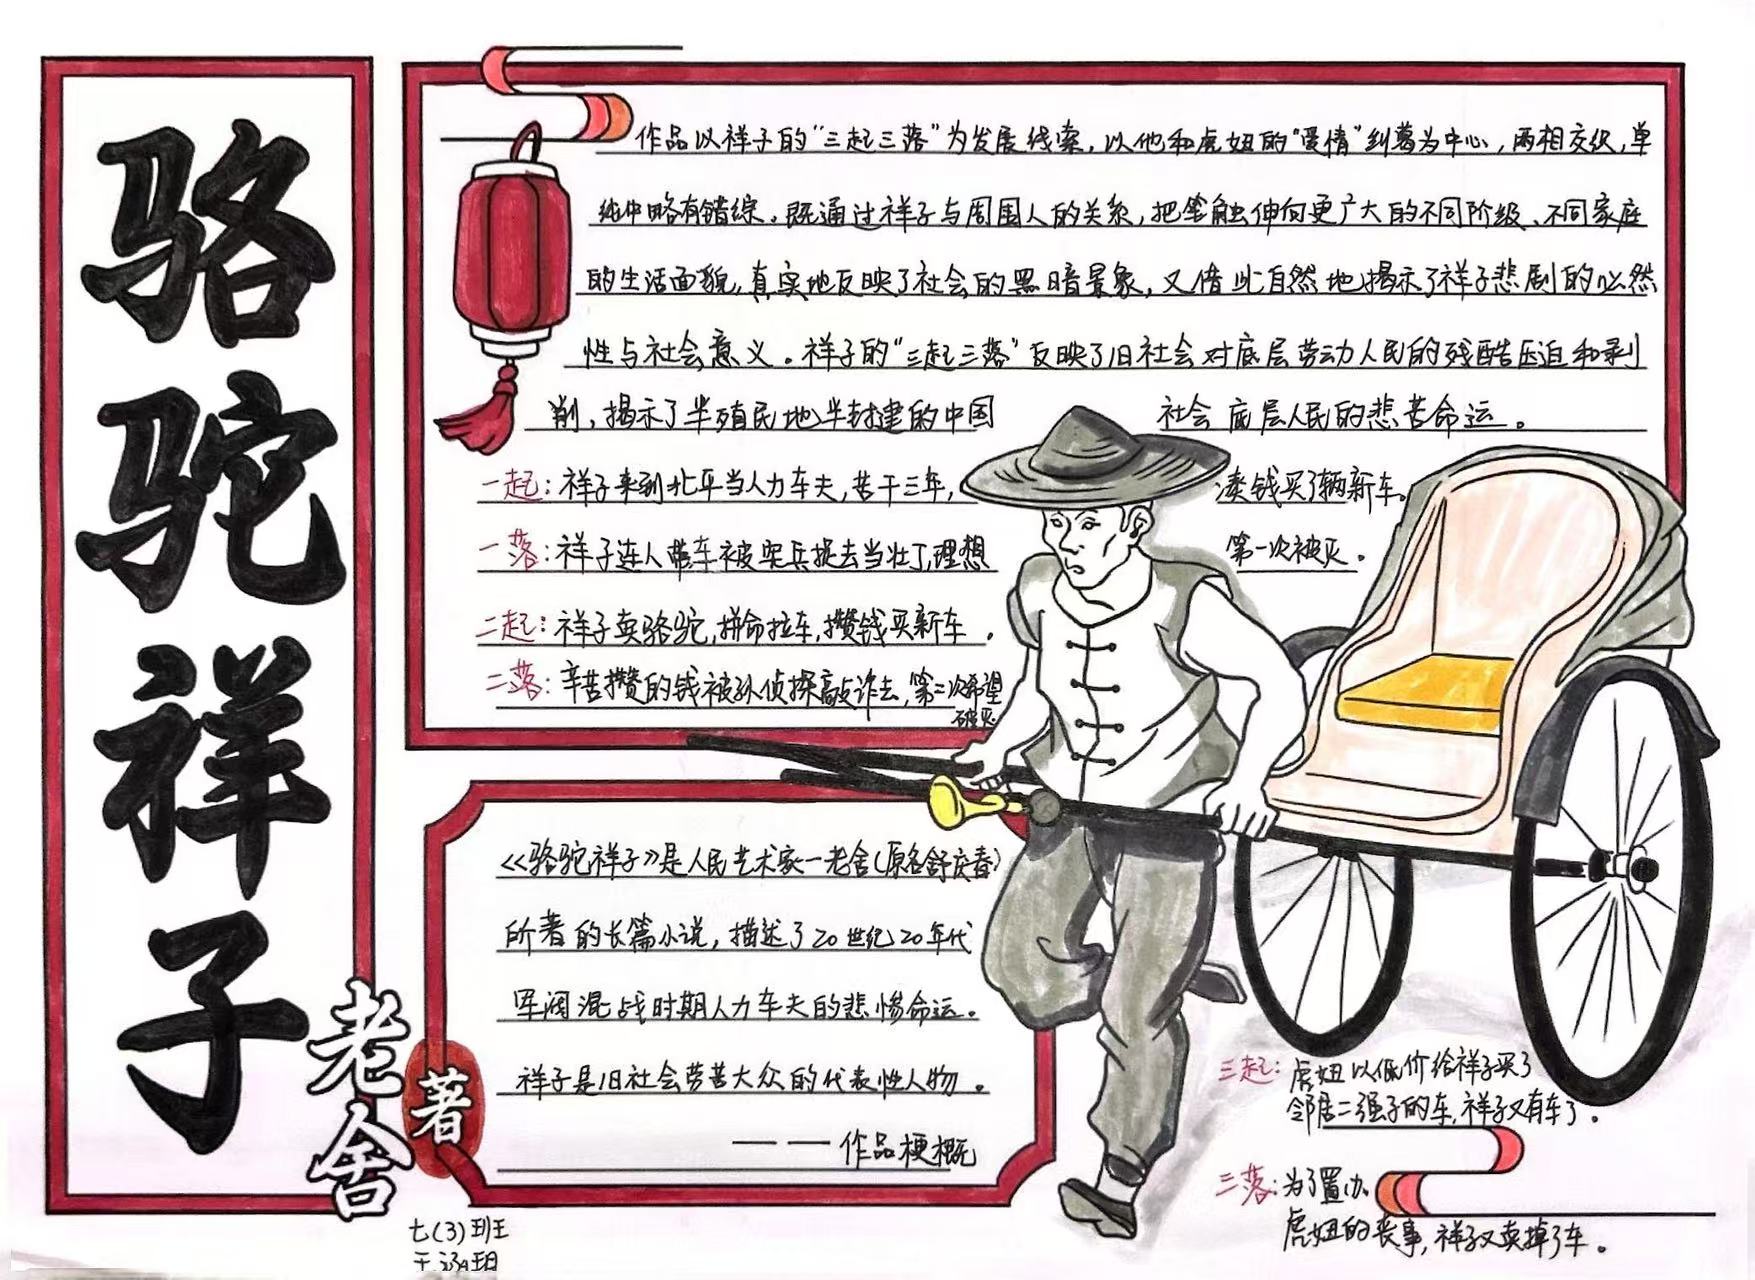 骆驼祥子
老舍
著
作品以祥子的“三起三落”为发展线索，以他和虎妞的“爱情”纠葛为中心，两相交织，单
纯中略有错综。既通过祥子与周围人的关系，把笔触伸向更广大的不同阶级、不同家庭
的生活面貌，真实地反映了社会的黑暗景象，又借此自然地揭示了祥子悲剧的必然
性与社会意义。祥子的“三起三落”反映了旧社会对底层劳动人民的残酷压迫和剥
削，揭示了半殖民地半封建的中国社会底层人民的悲苦命运。
一起：祥子来到北平当人力车夫，苦干三年，凑钱买了辆新车。
一落：祥子连人带车被宪兵捉去当壮丁，理想第一次破灭。
二起：祥子卖骆驼，拼命拉车，攒钱买新车。
二落：辛苦攒的钱被孙侦探敲诈去，第二次希望
破灭
《骆驼祥子》是人民艺术家一老舍（原名舒庆春）
所著的长篇小说，描述了20世纪20年代
军阀混战时期人力车夫的悲惨命运。
祥子是旧社会劳苦大众的代表性人物。
——作品梗概
三起：虎妞以低价给祥子买了
邻居二强子的车，祥子又有车了。
三落：为了置办
虎妞的丧事，祥子又卖掉了车。
七(3)班